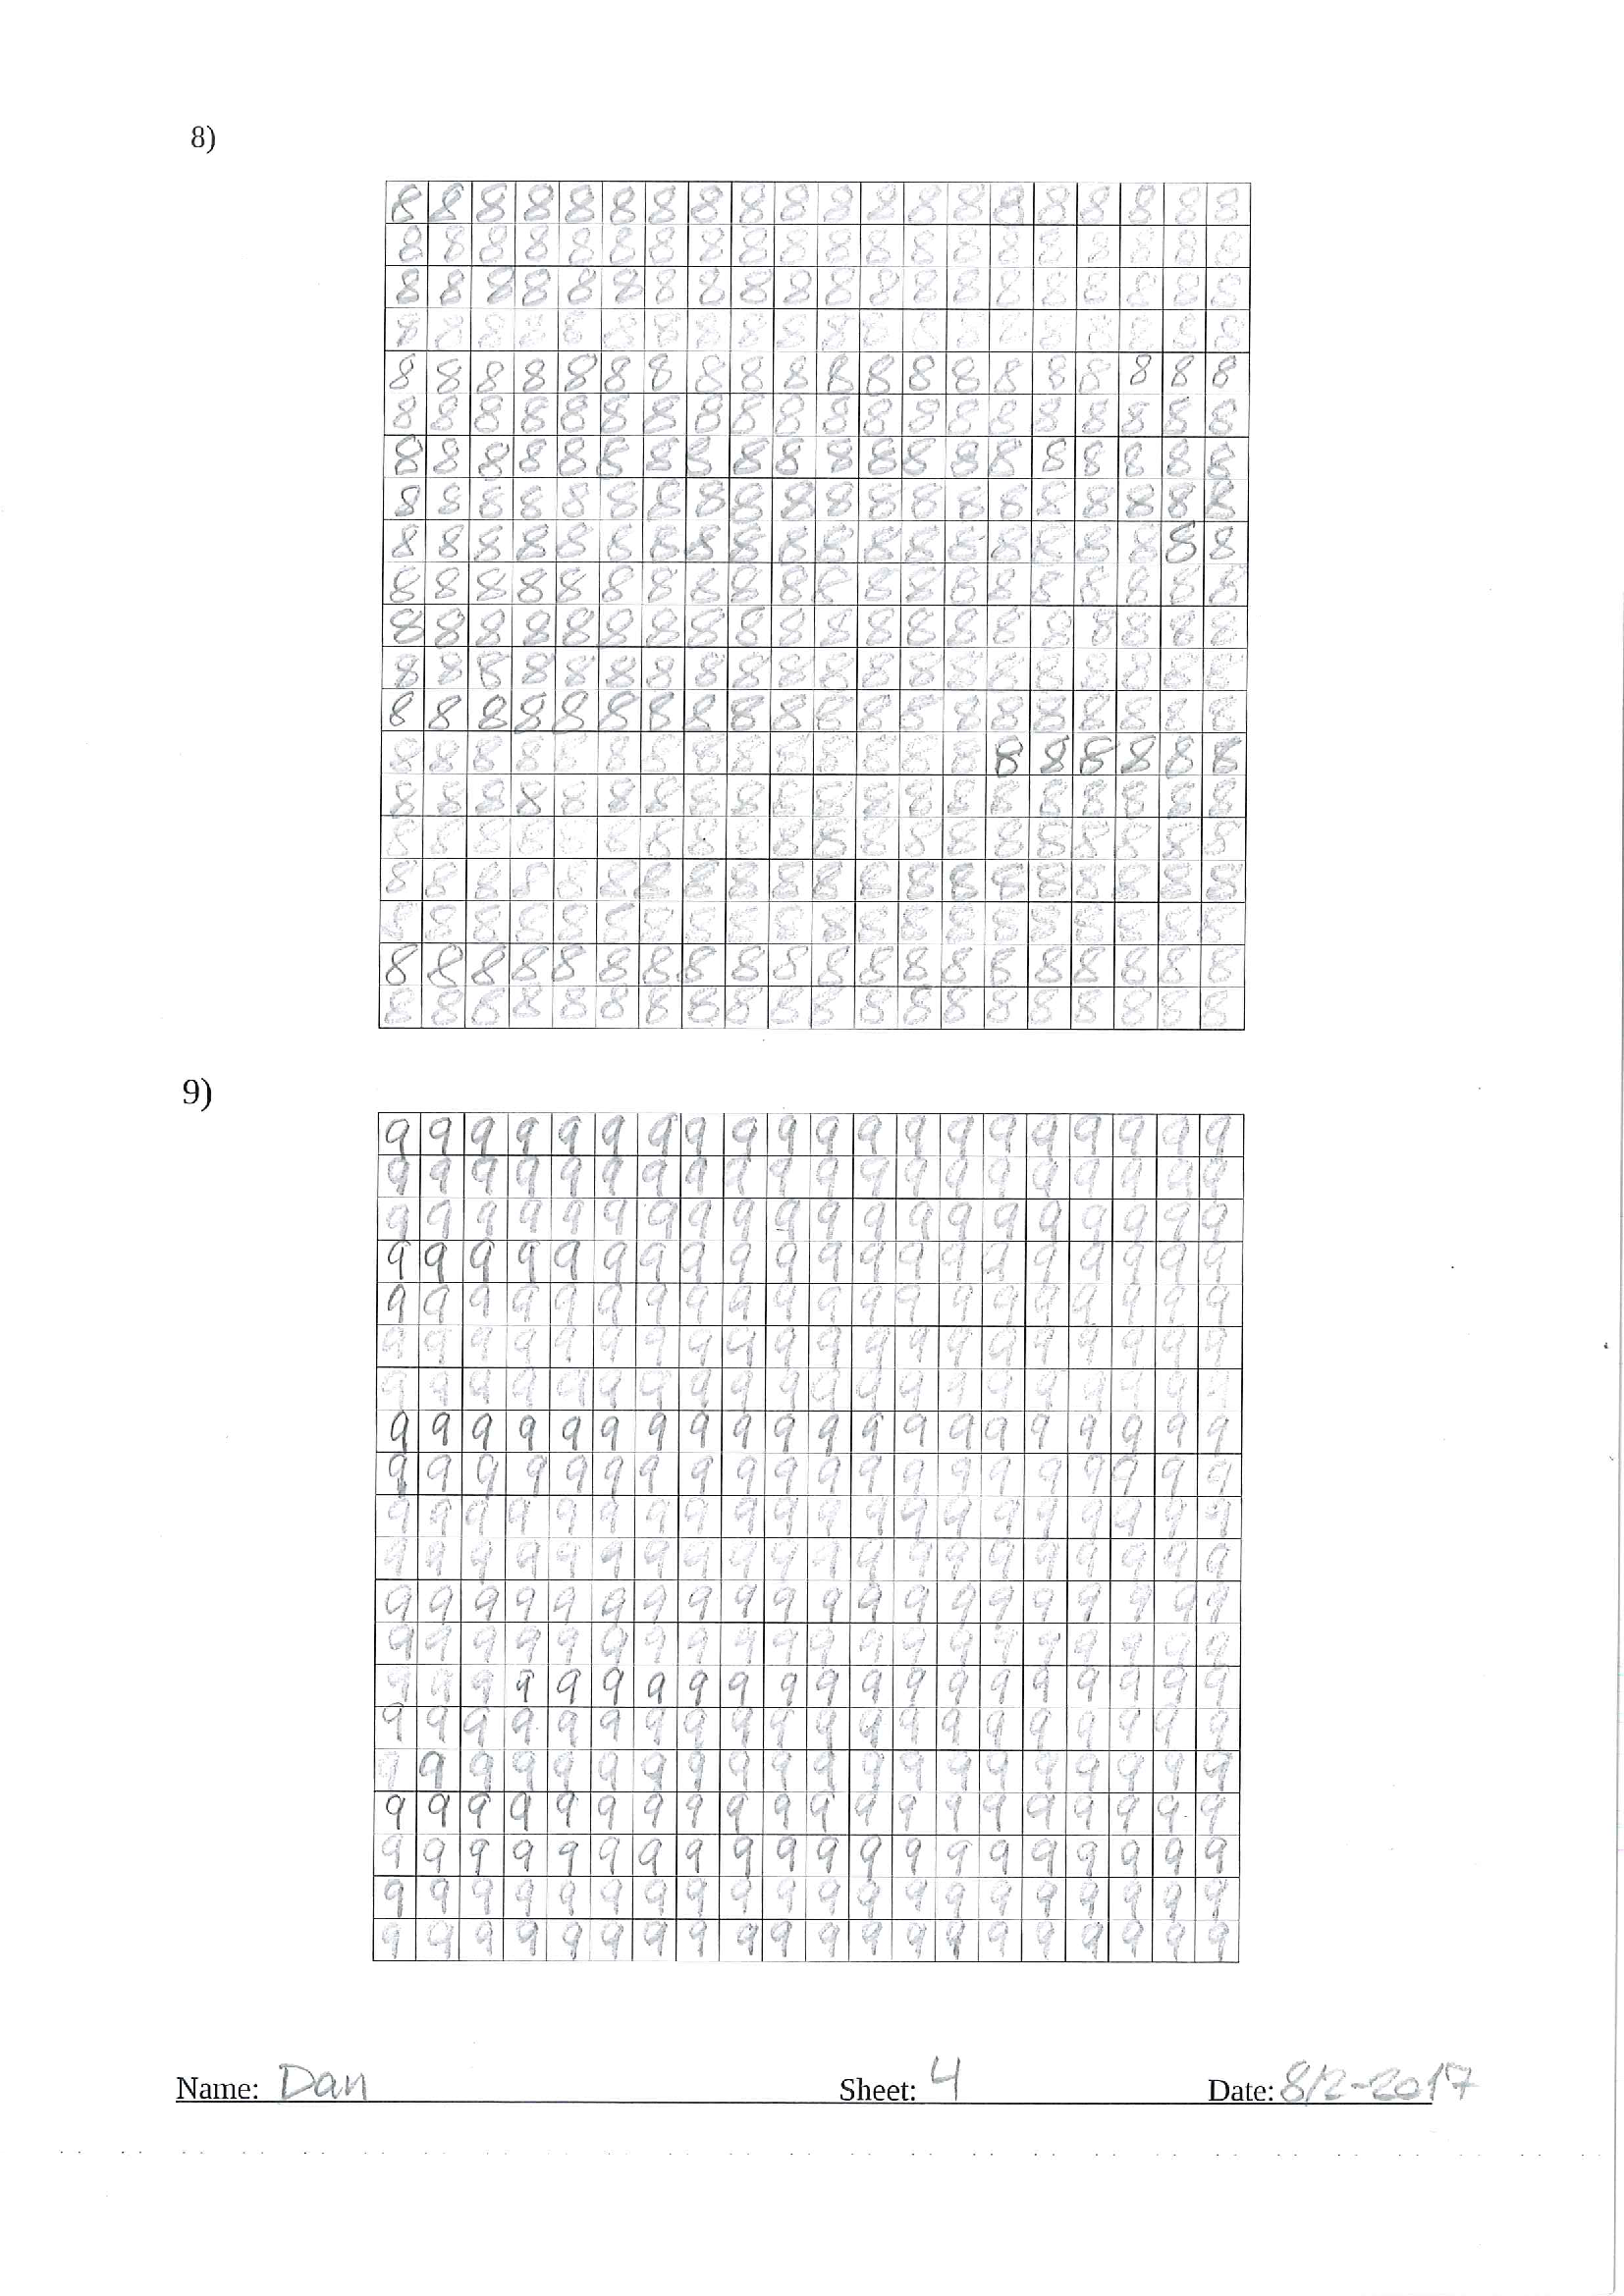 8)
8 8 8 8 8 8 8 8 8 8 8 8 8 8 8 8 8 8 8 8
8 8 8 8 8 8 8 8 8 8 8 8 8 8 8 8 8 8 8 8
8 8 8 8 8 8 8 8 8 8 8 8 8 8 8 8 8 8 8 8
8 8 8 8 8 8 8 8 8 8 8 8 8 8 8 8 8 8 8 8
8 8 8 8 8 8 8 8 8 8 8 8 8 8 8 8 8 8 8 8
8 8 8 8 8 8 8 8 8 8 8 8 8 8 8 8 8 8 8 8
8 8 8 8 8 8 8 8 8 8 8 8 8 8 8 8 8 8 8 8
8 8 8 8 8 8 8 8 8 8 8 8 8 8 8 8 8 8 8 8
8 8 8 8 8 8 8 8 8 8 8 8 8 8 8 8 8 8 8 8
8 8 8 8 8 8 8 8 8 8 8 8 8 8 8 8 8 8 8 8
8 8 8 8 8 8 8 8 8 8 8 8 8 8 8 8 8 8 8 8
8 8 8 8 8 8 8 8 8 8 8 8 8 8 8 8 8 8 8 8
8 8 8 8 8 8 8 8 8 8 8 8 8 8 8 8 8 8 8 8
8 8 8 8 8 8 8 8 8 8 8 8 8 8 8 8 8 8 8 8
8 8 8 8 8 8 8 8 8 8 8 8 8 8 8 8 8 8 8 8
8 8 8 8 8 8 8 8 8 8 8 8 8 8 8 8 8 8 8 8
8 8 8 8 8 8 8 8 8 8 8 8 8 8 8 8 8 8 8 8
8 8 8 8 8 8 8 8 8 8 8 8 8 8 8 8 8 8 8 8
8 8 8 8 8 8 8 8 8 8 8 8 8 8 8 8 8 8 8 8
8 8 8 8 8 8 8 8 8 8 8 8 8 8 8 8 8 8 8 8
9)
9 9 9 9 9 9 9 9 9 9 9 9 9 9 9 9 9 9 9 9
9 9 9 9 9 9 9 9 9 9 9 9 9 9 9 9 9 9 9 9
9 9 9 9 9 9 9 9 9 9 9 9 9 9 9 9 9 9 9 9
9 9 9 9 9 9 9 9 9 9 9 9 9 9 9 9 9 9 9 9
9 9 9 9 9 9 9 9 9 9 9 9 9 9 9 9 9 9 9 9
9 9 9 9 9 9 9 9 9 9 9 9 9 9 9 9 9 9 9 9
9 9 9 9 9 9 9 9 9 9 9 9 9 9 9 9 9 9 9 9
9 9 9 9 9 9 9 9 9 9 9 9 9 9 9 9 9 9 9 9
9 9 9 9 9 9 9 9 9 9 9 9 9 9 9 9 9 9 9 9
9 9 9 9 9 9 9 9 9 9 9 9 9 9 9 9 9 9 9 9
9 9 9 9 9 9 9 9 9 9 9 9 9 9 9 9 9 9 9 9
9 9 9 9 9 9 9 9 9 9 9 9 9 9 9 9 9 9 9 9
9 9 9 9 9 9 9 9 9 9 9 9 9 9 9 9 9 9 9 9
9 9 9 9 9 9 9 9 9 9 9 9 9 9 9 9 9 9 9 9
9 9 9 9 9 9 9 9 9 9 9 9 9 9 9 9 9 9 9 9
9 9 9 9 9 9 9 9 9 9 9 9 9 9 9 9 9 9 9 9
9 9 9 9 9 9 9 9 9 9 9 9 9 9 9 9 9 9 9 9
9 9 9 9 9 9 9 9 9 9 9 9 9 9 9 9 9 9 9 9
9 9 9 9 9 9 9 9 9 9 9 9 9 9 9 9 9 9 9 9
9 9 9 9 9 9 9 9 9 9 9 9 9 9 9 9 9 9 9 9
Name: Dan Sheet: 4 Date: 8/2-2017